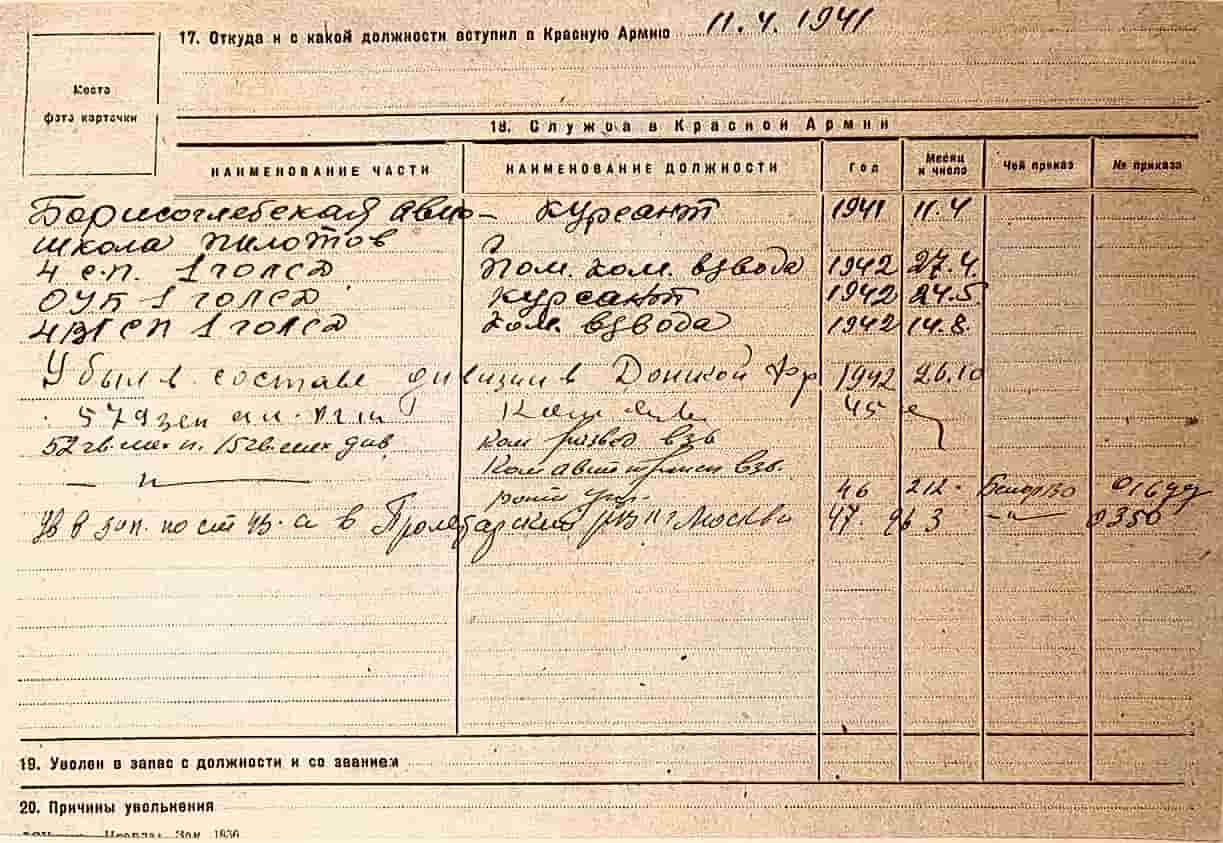 17. Откуда и с какой должности вступил в Красную Армию 11.4.1941
Место
фото карточки
18. Служба в Красной Армии
НАИМЕНОВАНИЕ ЧАСТИ НАИМЕНОВАНИЕ ДОЛЖНОСТИ Год Месяц и число Чей приказ № приказа
Борисоглебская авиа- курсант 1941 11.4
школа пилотов
4 с.п. 1 гопсд Пом. ком. взвода 1942 27.4.
ОУП 1 гопсд курсант 1942 24.5
1 гопсд ком. взвода 1942 14.8.
Убыл в составе дивизии в Донской фр 1942 26.10
579 зен 45
52 гв. мех п. 15 гв. мех див. ком развед взв
— " — Ком взв.
роты 46 212
в зап. по ст в Пролетарский РВК г Москвы 47. 3 — " — 0350
19. Уволен в запас с должности и со званием
20. Причины увольнения
Зак 1836